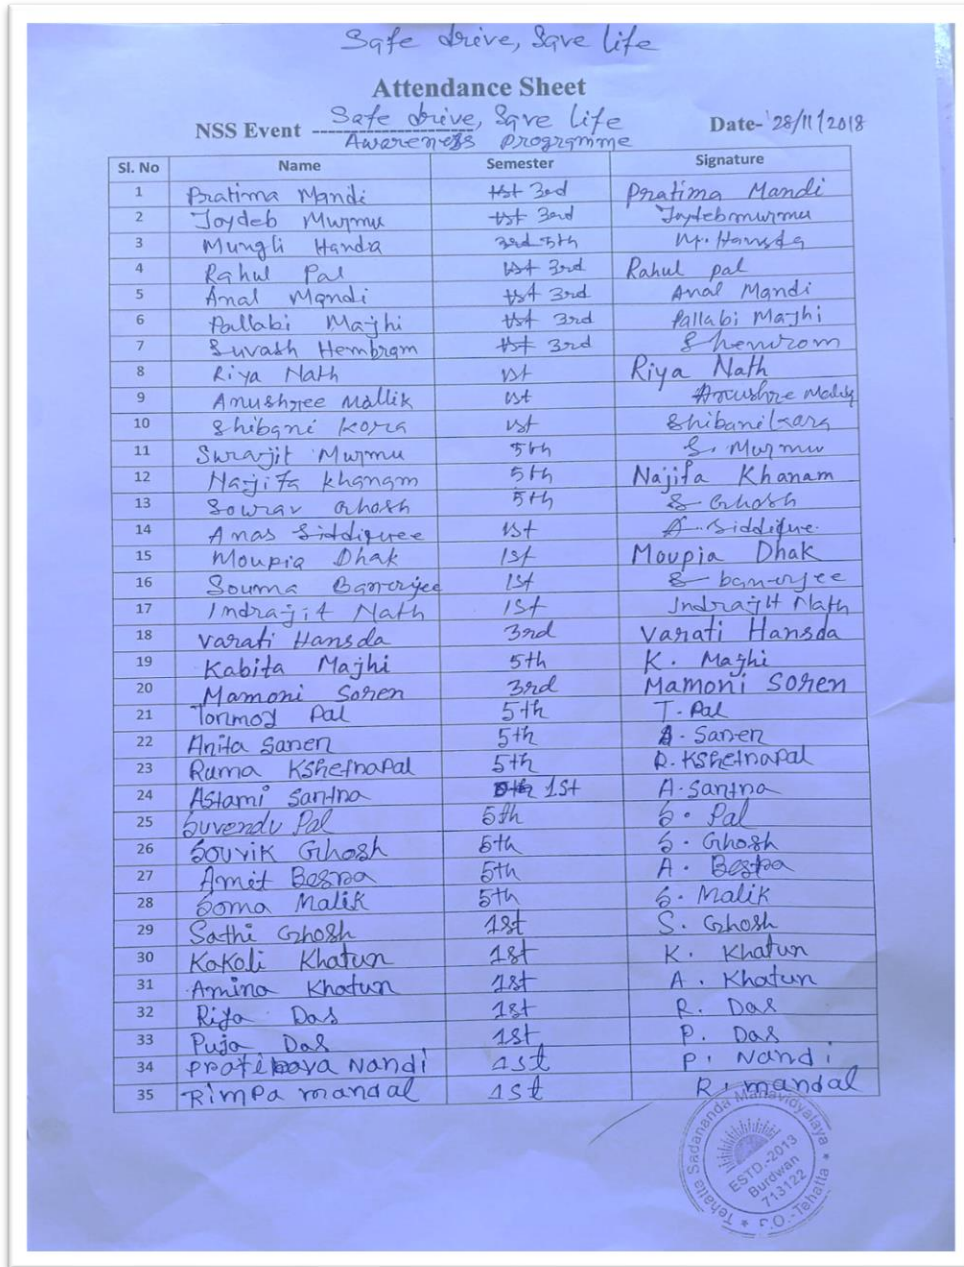 Safe drive, Save life
Attendance Sheet
NSS Event Safe drive, Save life Date- 28/11/2018
Awareness Programme
Sl. No Name Semester Signature
1 Pratima Mandi 1st 3rd Pratima Mandi
2 Joydeb Murmu 1st 3rd Joydeb murmu
3 Mungli Handa 3rd 5th M. Hansda
4 Rahul Pal 1st 3rd Rahul pal
5 Anal Mandi 1st 3rd Anal Mandi
6 Pallabi Majhi 1st 3rd Pallabi Majhi
7 Suvash Hembram 1st 3rd
8 Riya Nath 1st Riya Nath
9 Anushree Mallik 1st Anushree
10 Shibani Kora 1st Shibani kora
11 Surajit Murmu 5th S. Murmu
12 Najifa khanam 5th Najifa Khanam
13 Sourav Ghosh 5th S Ghosh
14 Anas Siddiquee 1st A. Siddique.
15 Moupia Dhak 1st Moupia Dhak
16 Souma Banerjee 1st S banerjee
17 Indrajit Nath 1st Indrajit Nath
18 varati Hansda 3rd varati Hansda
19 Kabita Majhi 5th K. Majhi
20 Mamoni Soren 3rd Mamoni Soren
21 Tonmoy Pal 5th T. Pal
22 Anita Saren 5th A. Saren
23 Ruma Kshetrapal 5th R. Kshetrapal
24 Astami Santra 5th 1st A. Santra
25 Suvendu Pal 5th S. Pal
26 Souvik Ghosh 5th S. Ghosh
27 Amit Besra 5th A. Besra
28 Soma Malik 5th S. Malik
29 Sathi Ghosh 1st S. Ghosh
30 Kakoli Khatun 1st K. Khatun
31 Amina Khatun 1st A. Khatun
32 Riya Das 1st R. Das
33 Puja Das 1st P. Das
34 Nandi 1st P. Nandi
35 Rimpa mandal 1st R. mandal
Tehatta Sadananda Mahavidyalaya
ESTD.-2013
Burdwan
713122
P.O.-Tehatta